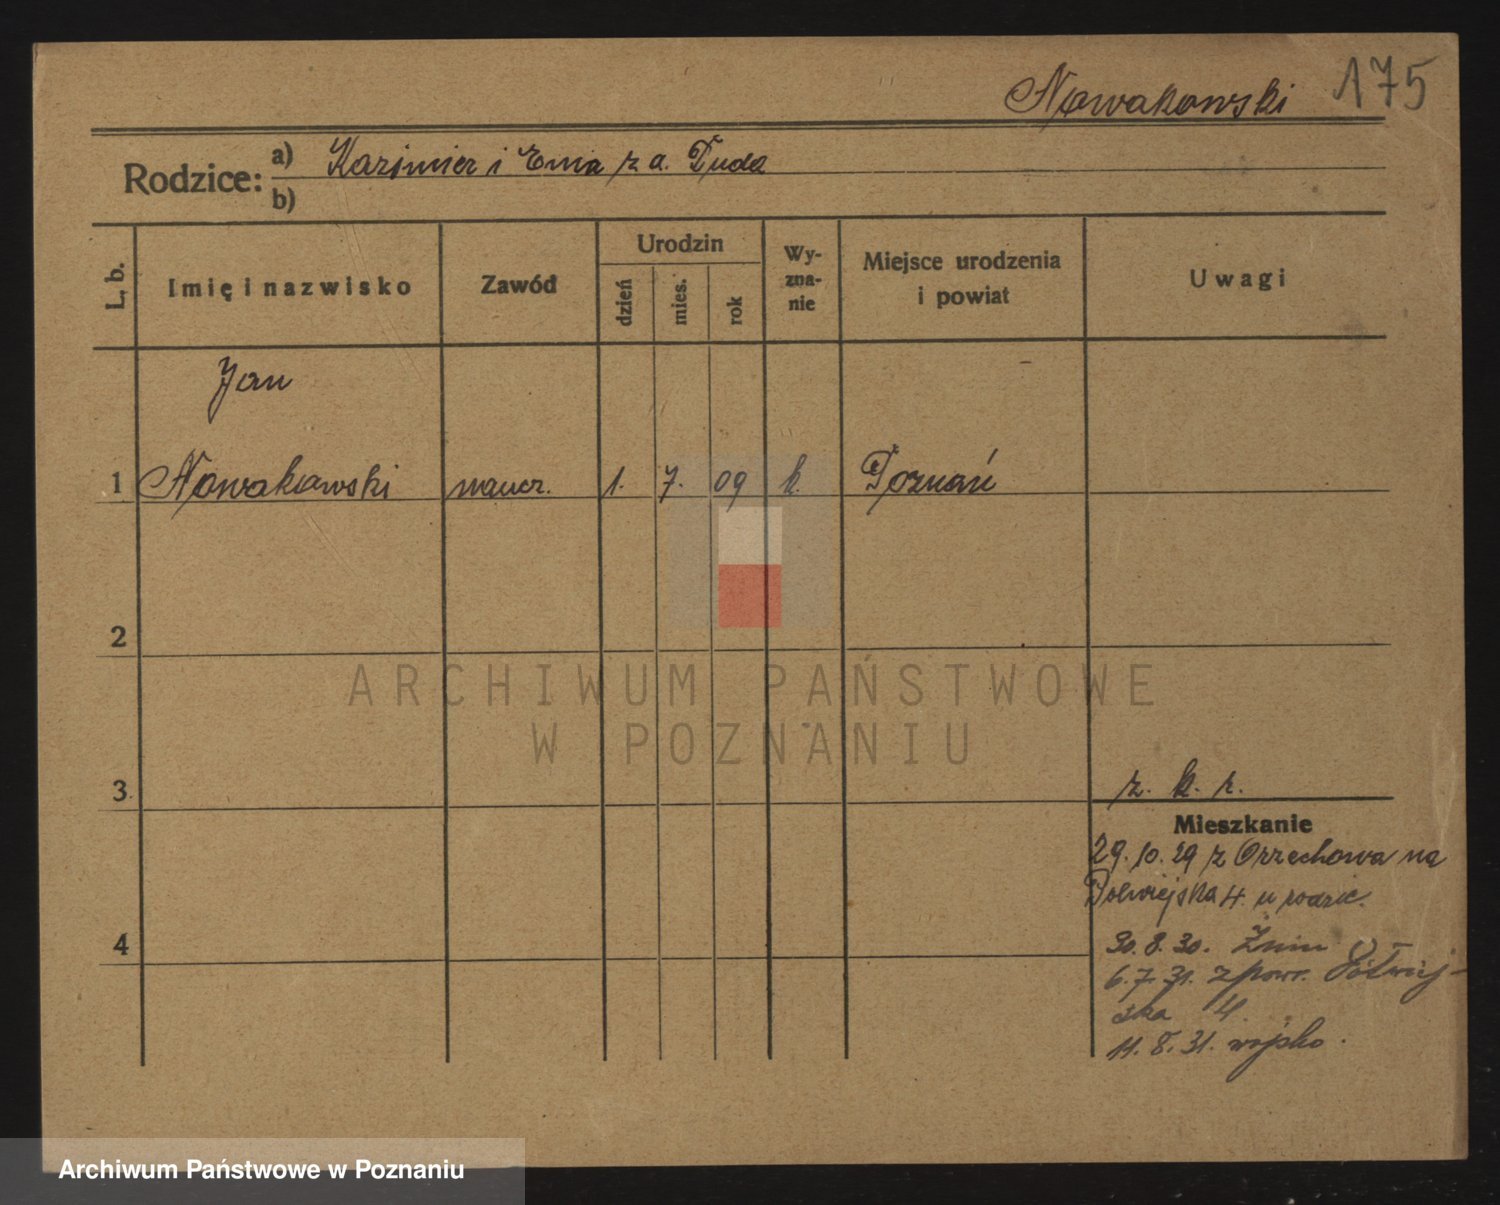 Nowakowski 175
Rodzice: a) Kazimier i Ema z d. Duda
b)
L. b.
Imię i nazwisko
Zawód
Urodzin
dzień
mies.
rok
Wy-
zna-
nie
Miejsce urodzenia
i powiat
Uwagi
Jan
1 Nowakowski naucz. 1. 7. 09 k. Poznań
2
ARCHIWUM PAŃSTWOWE
W POZNANIU
3 z. k. r.
Mieszkanie
29.10.29 z Orzechowa na
Półwiejska 4. u rodzic.
4
30.8.30. Żnin
6.7.31. z powr. Półwiej-
ska 4
11.8.31. wojsko.
Archiwum Państwowe w Poznaniu